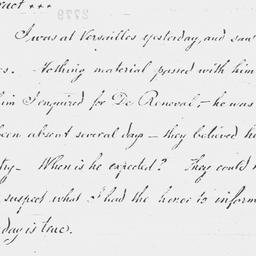 ract ***
I was at Versailles yesterday, and saw
s. Nothing material passed with him
him I enquired for De Reneval, – he was
been absent several days – they believed he
try – When is he expected? They could n
suspect what I had the honor to inform
day is true.